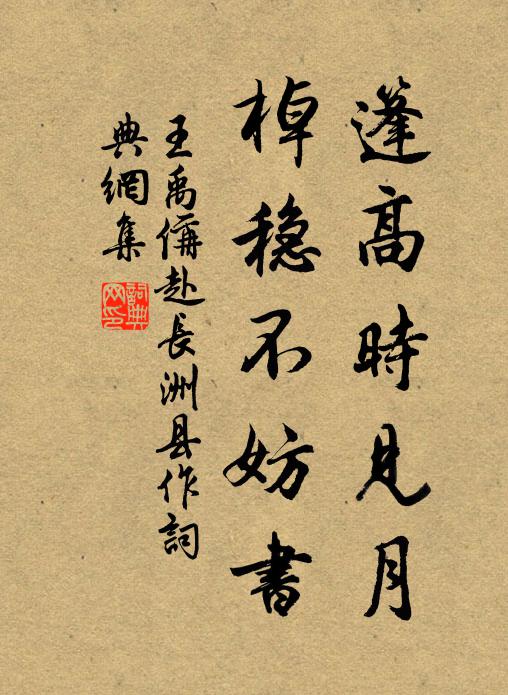 蓬高時見月
棹穩不妨書
王禹偁赴長洲县作詞
典網集
詞典網印